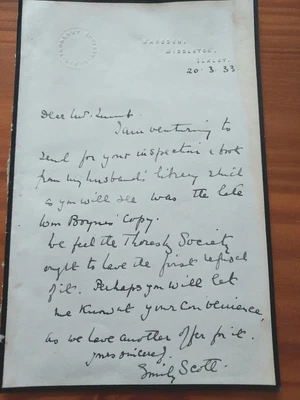 MIDDLETON,
ILKLEY.
20.3.33
Dear Mr.
I am venturing to
send for your inspection a book
from my husband's library which
as you will see was the late
Wm Boyne's Copy.
We feel the Thoresby Society
ought to have the first refusal
of it. Perhaps you will let
me know at your convenience,
as we have another offer for it.
Yours sincerely,
Emily Scott.